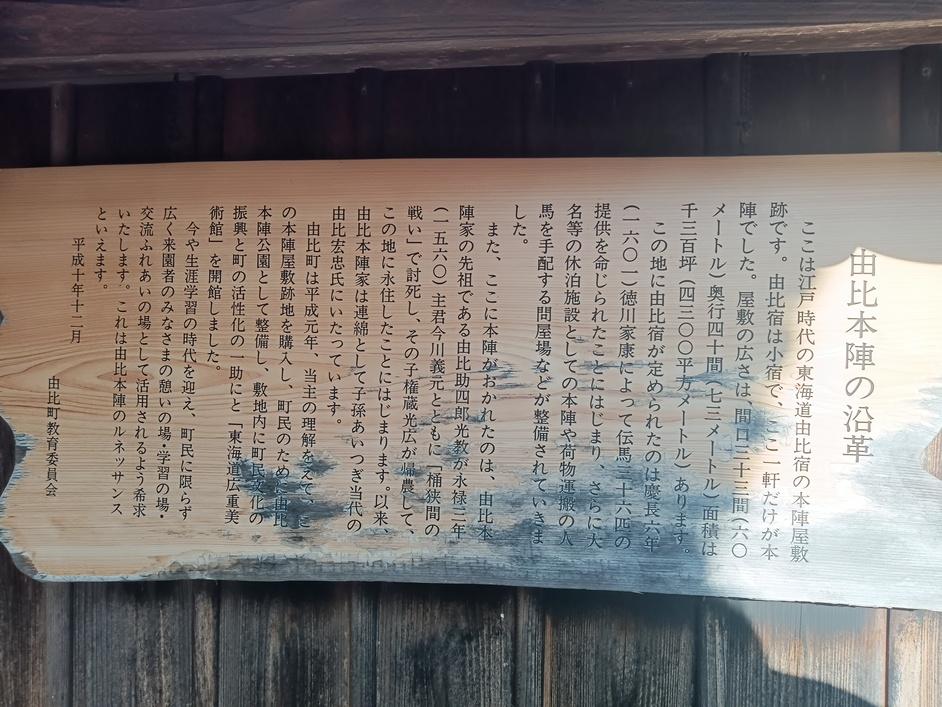 由比本陣の沿革
ここは江戸時代の東海道由比宿の本陣屋敷
跡です。由比宿は小宿で、ここ一軒だけが本
陣でした。屋敷の広さは、間口三十三間（六〇
メートル）奥行四十間（七三メートル）面積は
千三百坪（四三〇〇平方メートル）あります。
この地に由比宿が定められたのは慶長六年
（一六〇一）徳川家康によって伝馬三十六匹の
提供を命じられたことにはじまり、さらに大
名等の休泊施設としての本陣や荷物運搬の人
馬を手配する問屋場などが整備されていきま
した。
また、ここに本陣がおかれたのは、由比本
陣家の先祖である由比助四郎光教が永禄三年
（一五六〇）主君今川義元とともに「桶狭間の
戦い」で討死し、その子権蔵光広が帰農して、
この地に永住したことにはじまります。以来、
由比本陣家は連綿として子孫あいつぎ当代の
由比宏忠氏にいたっています。
由比町は平成元年、当主の理解をえて、こ
の本陣屋敷跡地を購入し、町民のために由比
本陣公園として整備し、敷地内に町民文化の
振興と町の活性化の一助にと「東海道広重美
術館」を開館しました。
今や生涯学習の時代を迎え、町民に限らず
広く来園者のみなさまの憩いの場・学習の場・
交流ふれあいの場として活用されるよう希求
いたします。これは由比本陣のルネッサンス
といえます。
平成十年十二月
由比町教育委員会